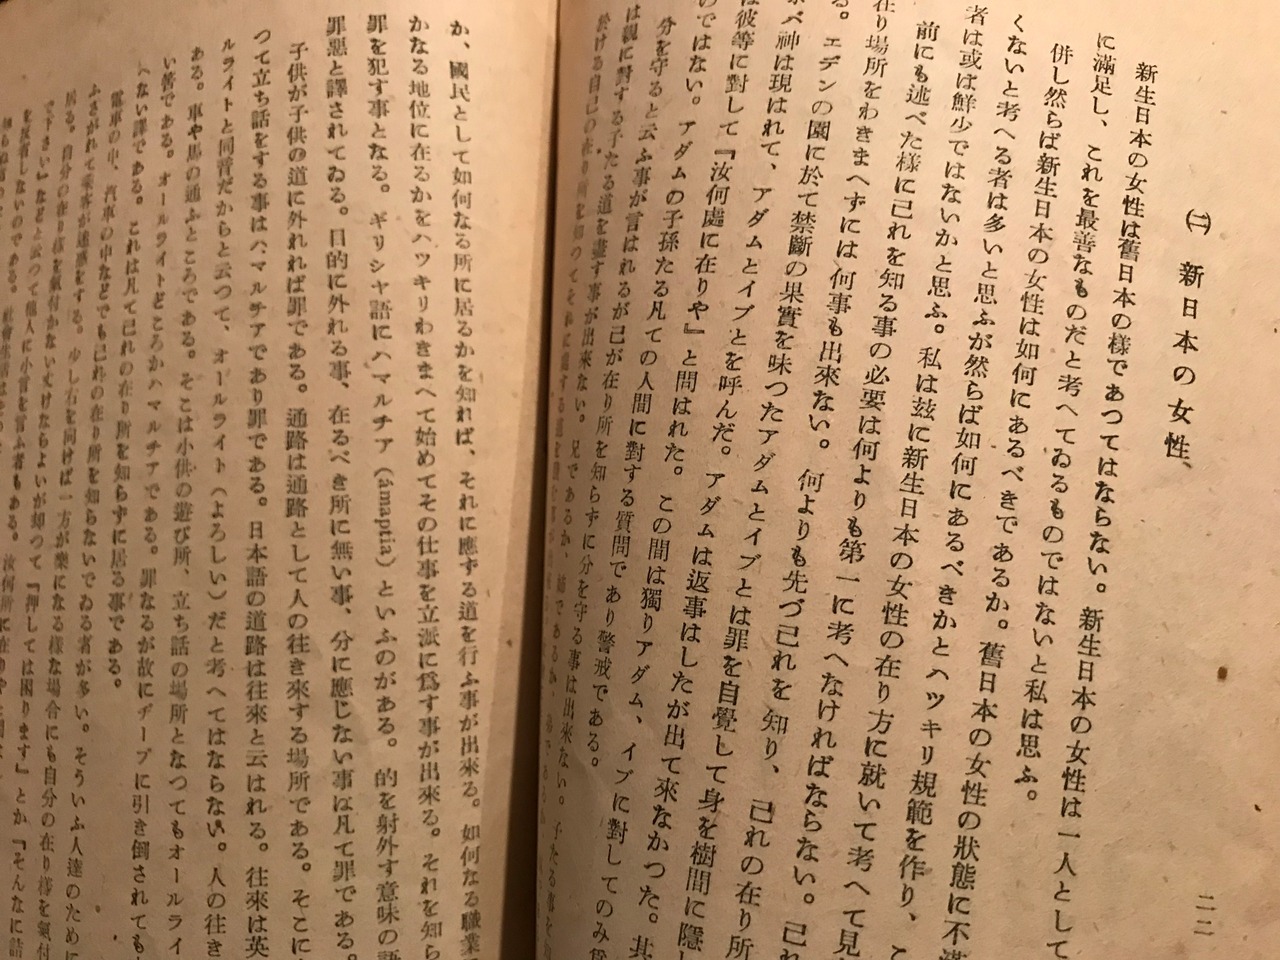 ㈡ 新日本の女性、
新生日本の女性は舊日本の樣であつてはならない。新生日本の女性は一人として
に滿足し、これを最善なものだと考へてゐるものではないと私は思ふ。
併し然らば新生日本の女性は如何にあるべきであるか。舊日本の女性の狀態に不滿
くないと考へる者は多いと思ふが然らば如何にあるべきかとハツキリ規範を作り、こ
者は或は鮮少ではないかと思ふ。私は玆に新生日本の女性の在り方に就いて考へて見
前にも述べた樣に己れを知る事の必要は何よりも第一に考へなければならない。己れ
在り場所をわきまへずには何事も出來ない。何よりも先づ己れを知り、己れの在り所
る。エデンの園に於て禁斷の果實を味つたアダムとイブとは罪を自覺して身を樹間に隱し
ホバ神は現はれて、アダムとイブとを呼んだ。アダムは返事はしたが出て來なかつた。其
は彼等に對して『汝何處に在りや』と問はれた。この間は獨りアダム、イブに對してのみ
のではない。アダムの子孫たる凡ての人間に對する質問であり警戒である。
分を守ると云ふ事が言はれるが己が在り所を知らずに分を守る事は出來ない。子たる事を
は親に對する子たる道を盡す事が出來ない。兄であるか、姉であるか、弟であるか
於ける自己の在り所を知つてそれに適する道を
か、國民として如何なる所に居るかを知れば、それに應ずる道を行ふ事が出來る。如何なる職業
かなる地位に在るかをハツキリわきまへて始めてその仕事を立派に爲す事が出來る。それを知ら
罪を犯す事となる。ギリシヤ語にハマルチア（ámaptia）といふのがある。的を射外す意味の語
罪惡と譯されてゐる。目的に外れる事、在るべき所に無い事、分に應じない事は凡て罪である。
子供が子供の道に外れれば罪である。通路は通路として人の往き來する場所である。そこに
つて立ち話をする事はハマルチアであり罪である。日本語の道路は往來と云はれる。往來は英
ルライトと同音だからと云つて、オールライト（よろしい）だと考へてはならない。人の往き
ある。車や馬の通ふところである。そこは小供の遊び所、立ち話の場所となつてもオールライ
い筈である。オールライトどころかハマルチアである。罪なるが故にヂープに引き倒されても
へない譯である。これは凡て己れの在り所を知らずに居る事である。
電車の中、汽車の中などでも己れの在り所を知らないでゐる者が多い。そういふ人達のために
ふさがれて乘客が迷惑をする。少し右を向けば一方が樂になる樣な場合にも自分の在り樣を氣付
居る。自分の在り樣を氣付かない丈けならよいが却つて『押しては困ります』とか『そんなに
で下さい』などと云つて他人に小言を言ふ者もある。汝何所に在りやと
を反省しないのである。社會生活は
二二